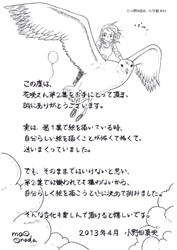 この度は、
花咲さん第2集をお手にとって頂き、
誠にありがとうございます。
実は、第1集で絵を描いている時、
自分らしい絵を描くことが怖くて怖くて、
迷いまくっていました。
でも、そのままではいけないと思い、
第2集では嫌われてても構わないから、
自分らしく絵を描こうと心に決めて挑みました。
そんな変化も楽しんで頂けると嬉しいです。
2013年4月 小野田真央
mao
onoda